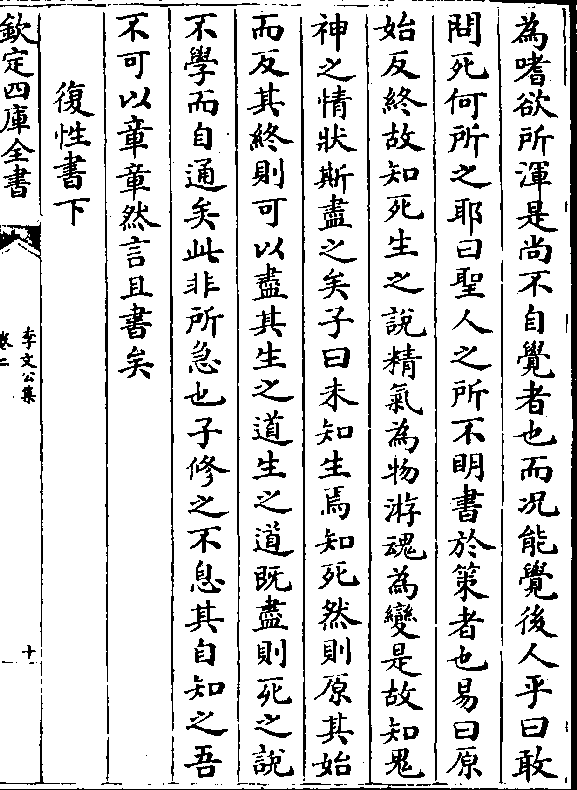 為嗜欲所渾是尚不自覺者也而况能覺後人乎曰敢
問死何所之耶曰聖人之所不明書於策者也易曰原
始反終故知死生之說精氣為物游魂為變是故知鬼
神之情狀斯盡之矣子曰未知生焉知死然則原其始
而反其終則可以盡其生之道生之道既盡則死之說
不學而自通矣此非所急也子修之不息其自知之吾
不可以章章然言且書矣
復性書下
欽定四庫全書
李文公集
卷二
十